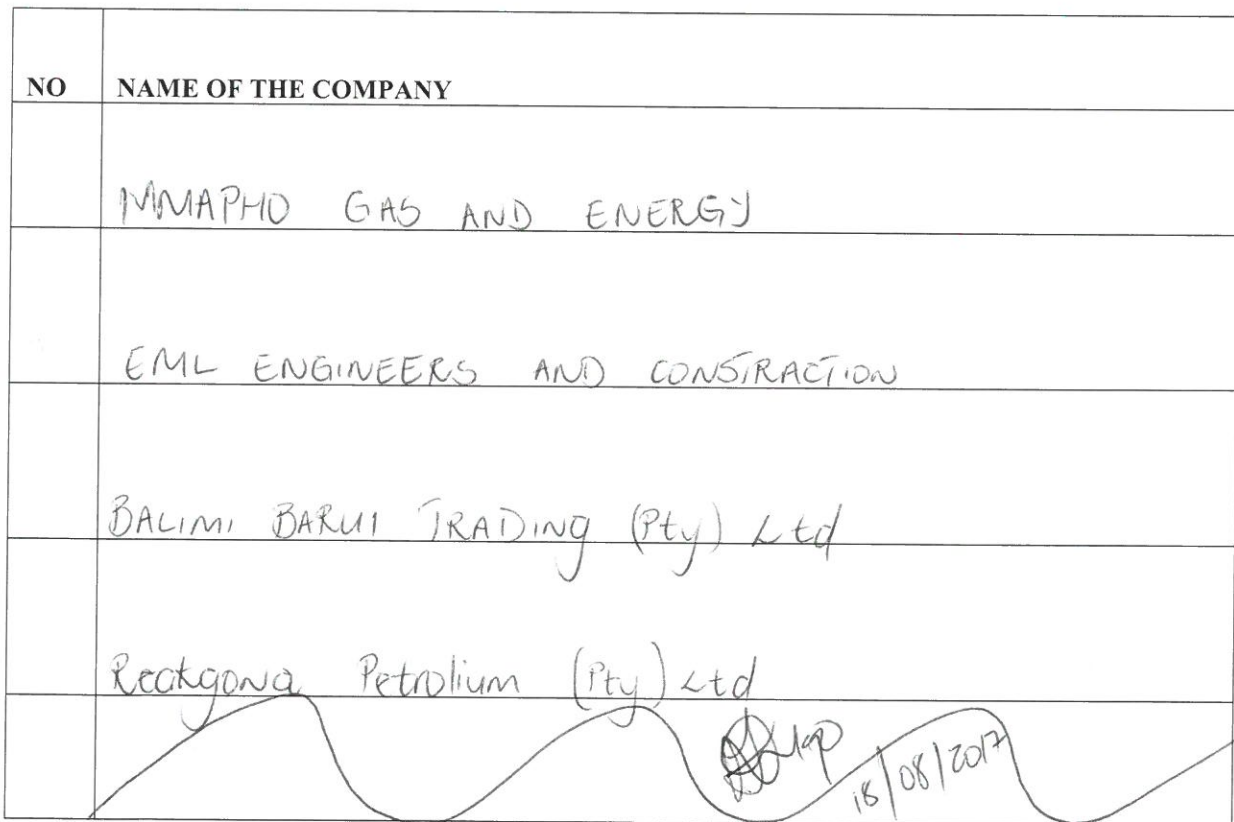 NO NAME OF THE COMPANY
MMAPHO GAS AND ENERGY
EML ENGINEERS AND CONSTRACTION
BALIMI BARUI TRADING (Pty) Ltd
Reakgona Petrolium (Pty) Ltd
18/08/2017